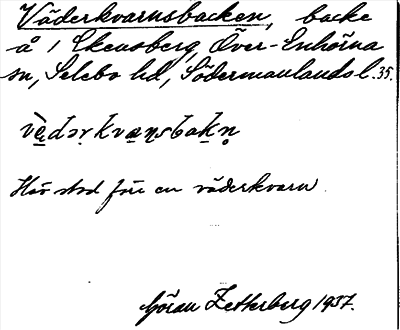 Väderkvarnsbacken, backe
å 1 Ekensberg, Över-Enhörna
sn, Selebo hd, Södermanlands l. 35.
vè̱dər̥kvæṇsbakn̥
Här stod förr en väderkvarn
Göran Zetterberg 1937.